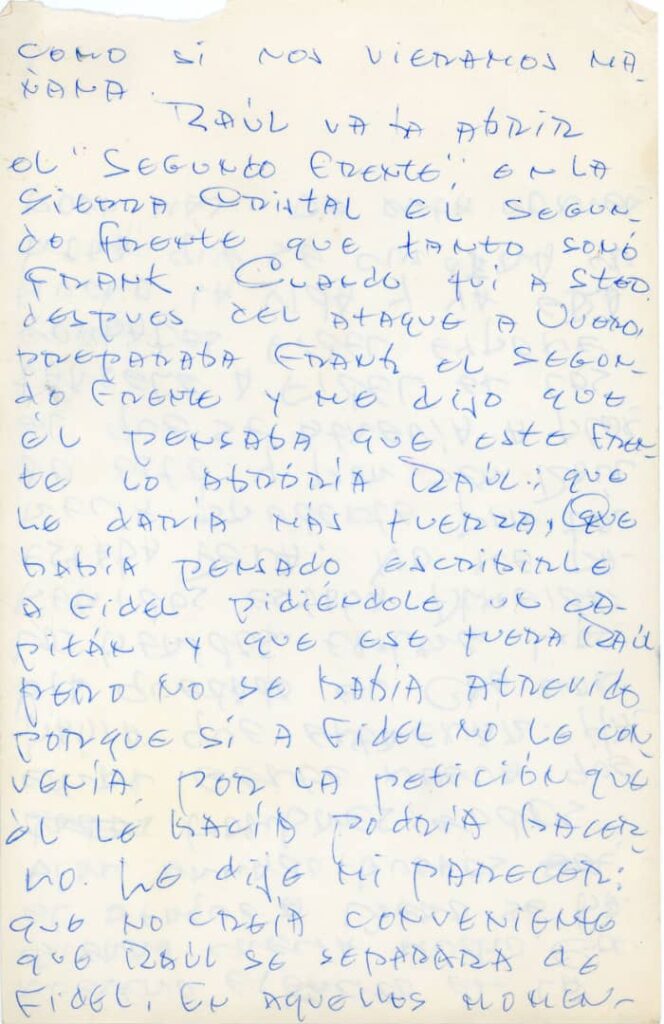 COMO SI NOS VIERAMOS MA-
ÑANA.
RAÚL VA A ABRIR
EL "SEGUNDO FRENTE", EN LA
SIERRA CRISTAL EL SEGUN-
DO FRENTE QUE TANTO SOÑÓ
FRANK. CUANDO FUI A STGO.
DESPUES DEL ATAQUE A UVERO,
PREPARABA FRANK EL SEGUN-
DO FRENTE Y ME DIJO QUE
ÉL PENSABA QUE ESTE FREN-
TE LO ABRIRIA RAÚL; QUE
LE DARIA MÁS FUERZA, QUE
HABÍA PENSADO ESCRIBIRLE
A FIDEL PIDIÉNDOLE UN CA-
PITÁN Y QUE ESE FUERA RAÚL,
PERO NO SE HABIA ATREVIDO
PORQUE SI A FIDEL NO LE CON
VENÍA, POR LA PETICIÓN QUE
ÉL LE HACÍA PODRÍA HACER-
LO. LE DIJE MI PARECER:
QUE NO CREÍA CONVENIENTE
QUE RAÚL SE SEPARARA DE
FIDEL. EN AQUELLOS MOMEN-